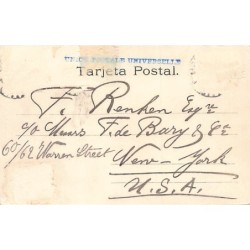 UNION POSTALE UNIVERSELLE
Tarjeta Postal.
F. Renken Esqre
c/o Messrs F. de Bary & Co
60/62 Warren Street
New-York
U.S.A.